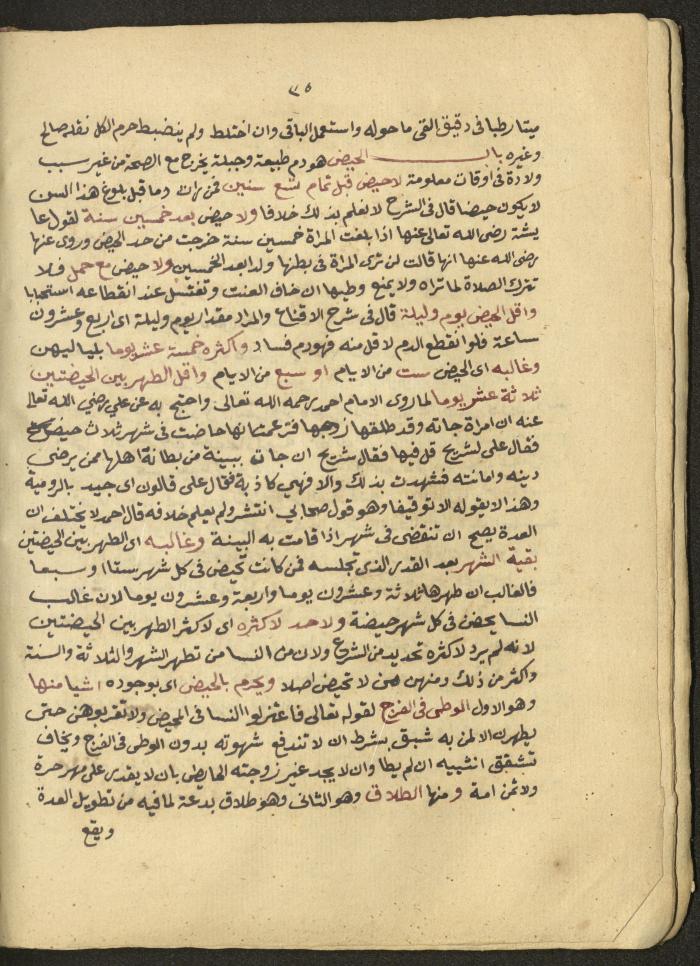 ٣٥
ميتا رطبا في دقيق القى ما حوله واستعمل الباقي وان اختلط ولم ينضبط حرم الكل نقله صالح
وغيره باب الحيض هو دم طبيعة وجبلة يخرج مع الصحة من غير سبب
ولادة في اوقات معلومة لا حيض قبل تمام تسع سنين فمن رات دما قبل بلوغ هذا السن
لا يكون حيضا قال في الشرح لا نعلم بذلك خلافا ولا حيض بعد خمسين سنة لقول عا
يشة رضى الله تعالى عنها اذا بلغت المراة خمسين سنة خرجت من حد الحيض وروى عنها
رضى الله عنها انها قالت لن ترى المراة في بطنها ولدا بعد الخمسين ولا حيض مع حمل فلا
تترك الصلاة لما تراه ولا يمنع وطيها ان خاف العنت وتغتسل عند انقطاعه استحبابا
واقل الحيض يوم وليلة قال في شرح الاقناع والمراد مقدار يوم وليلة اى اربع وعشرون
ساعة فلو انقطع الدم لاقل منه فهو دم فساد واكثره خمسة عشر يوما بلياليهن
وغالبه اى الحيض ست من الايام او سبع من الايام واقل الطهر بين الحيضتين
ثلاثة عشر يوما لما روى الامام احمد رحمه الله تعالى واحتج به عن علي رضي الله تعالى
عنه ان امراة جاته وقد طلقها زوجها فزعمت انها حاضت في شهر ثلاث حيض
فقال على لشريح قل فيها فقال شريح ان جات ببينة من بطانة اهلها ممن يرضى
دينه وامانته فشهدت بذلك والا فهي كاذبة فقال على قالون اى جيد بالرومية
وهذا لا يقوله الا توقيفا وهو قول صحابي انتشر ولم يعلم خلافه قال احمد لا يختلف ان
العدة يصح ان تنقضى في شهر اذا قامت به البينة وغالبه اى الطهر بين الحيضتين
بقية الشهر بعد القدر الذى تجلسه فمن كانت تحيض في كل شهر ستا او سبعا
فالغالب ان طهرها ثلاثة وعشرون يوما واربعة وعشرون يوما لان غالب
النسا يحضن في كل شهر حيضة ولا حد لاكثره اى لاكثر الطهر بين الحيضتين
لانه لم يرد لاكثره تحديد من الشرع ولان من النسا من تطهر الشهر والثلاثة والسنة
واكثر من ذلك ومنهن من لا تحيض اصلا ويحرم بالحيض اى بوجوده اشيا منها
وهو الاول الوطى في الفرج لقوله تعالى فاعتزلوا النسا في المحيض ولا تقربوهن حتى
يطهرن الا لمن به شبق بشرط ان لا تندفع شهوته بدون الوطى في الفرج ويخاف
تشقق انثييه ان لم يطا وان لا يجد غير زوجته الحايض بان لا يقدر على مهر حرة
ولا ثمن امة ومنها الطلاق وهو الثانى وهو طلاق بدعة لما فيه من تطويل العدة
ويقع